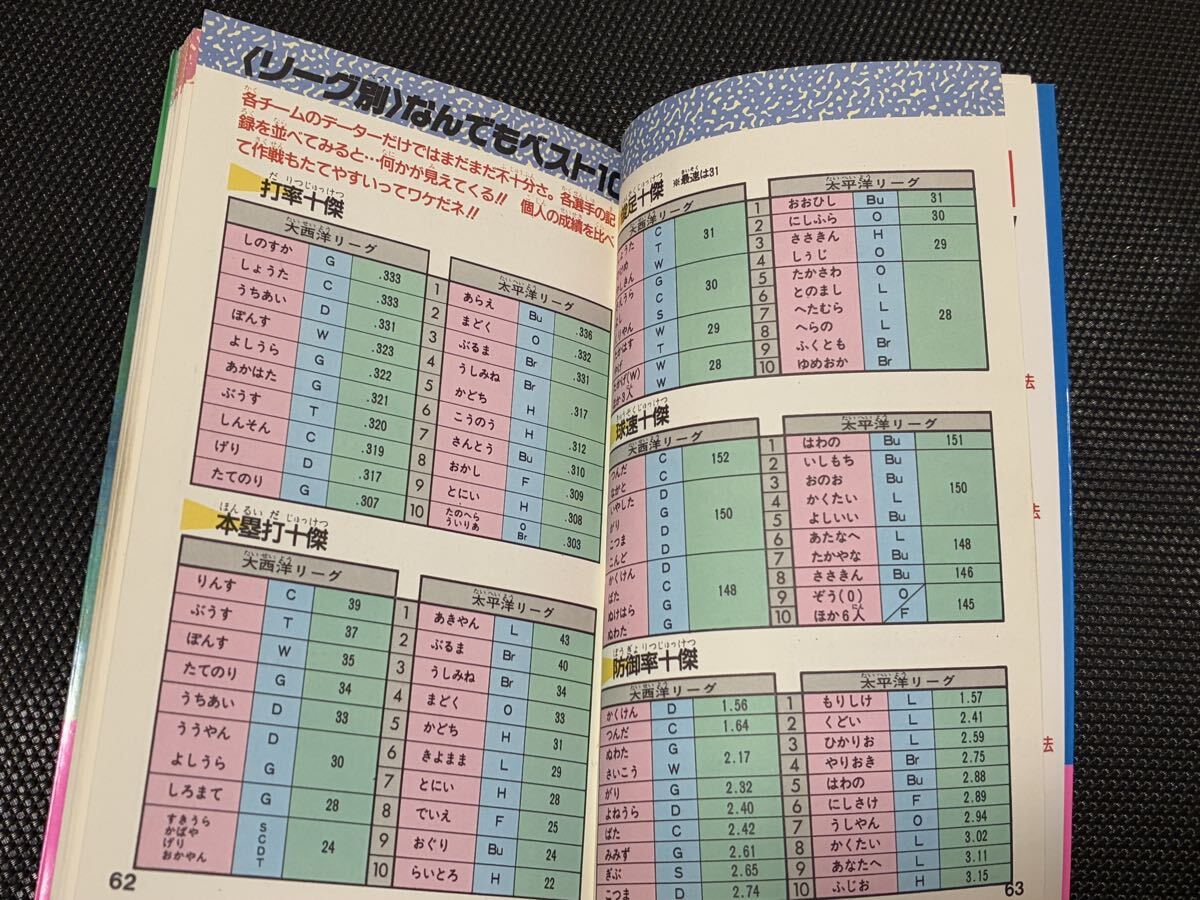 〈リーグ別〉なんでもベスト10
各チームのデーターだけではまだまだ不十分さ。各選手の記
録を並べてみると…何かが見えてくる!! 個人の成績を比べ
て作戦もたてやすいってワケだネ!!
打率十傑
大西洋リーグ
しのすか G .333
しょうた C .333
うちあい D .331
ぽんす W .323
よしうら G .322
あかはた G .321
ぶうす T .320
しんそん C .319
げり D .317
たてのり G .307
太平洋リーグ
1 あらえ Bu .336
2 まどく O .332
3 ぶるま Br .331
4 うしみね Br .317
5 かどち H
6 こうのう H .312
7 さんとう Bu .310
8 おかし F .309
9 とにい H .308
10 たのへら O .303
ういりあ Br
本塁打十傑
大西洋リーグ
りんす C 39
ぶうす T 37
ぽんす W 35
たてのり G 34
うちあい D 33
ううやん D 30
よしうら G
しろまて G 28
すきうら S 24
かばや C
げり D
おかやん T
太平洋リーグ
1 あきやん L 43
2 ぶるま Br 40
3 うしみね Br 34
4 まどく O 33
5 かどち H 31
6 きよまま L 29
7 とにい H 28
8 でいえ F 25
9 おぐり Bu 24
10 らいとろ H 22
62
足十傑 ※最速は31
大西洋リーグ
C 31
T
W
G 30
C
S
W 29
T
W 28
W
太平洋リーグ
1 おおひし Bu 31
2 にしふら O 30
3 ささきん H 29
4 しぅじ O
5 たかさわ O 28
6 とのまし L
7 へたむら L
8 へらの L
9 ふくとも Br
10 ゆめおか Br
球速十傑
大西洋リーグ
つんだ C 152
ながと C
いやした D 150
がり G
こつま D
こんど D
かくけん D 148
ばた C
ぬけはら G
ぬわた G
太平洋リーグ
1 はわの Bu 151
2 いしもち Bu 150
3 おのお Bu
4 かくたい L
5 よしいい Bu
6 あたなへ L 148
7 たかやな Bu
8 ささきん Bu 146
9 ぞう(O) O 145
10 ほか6人 F
防御率十傑
大西洋リーグ
かくけん D 1.56
つんだ C 1.64
ぬわた G 2.17
さいこう W
がり G 2.32
よねうら D 2.40
ばた C 2.42
みみず G 2.61
ぎぶ S 2.65
こつま D 2.74
太平洋リーグ
1 もりしけ L 1.57
2 くどい L 2.41
3 ひかりお L 2.59
4 やりおき Br 2.75
5 はわの Bu 2.88
6 にしさけ F 2.89
7 うしやん O 2.94
8 かくたい L 3.02
9 あなたへ L 3.11
10 ふじお H 3.15
63
法
法
法